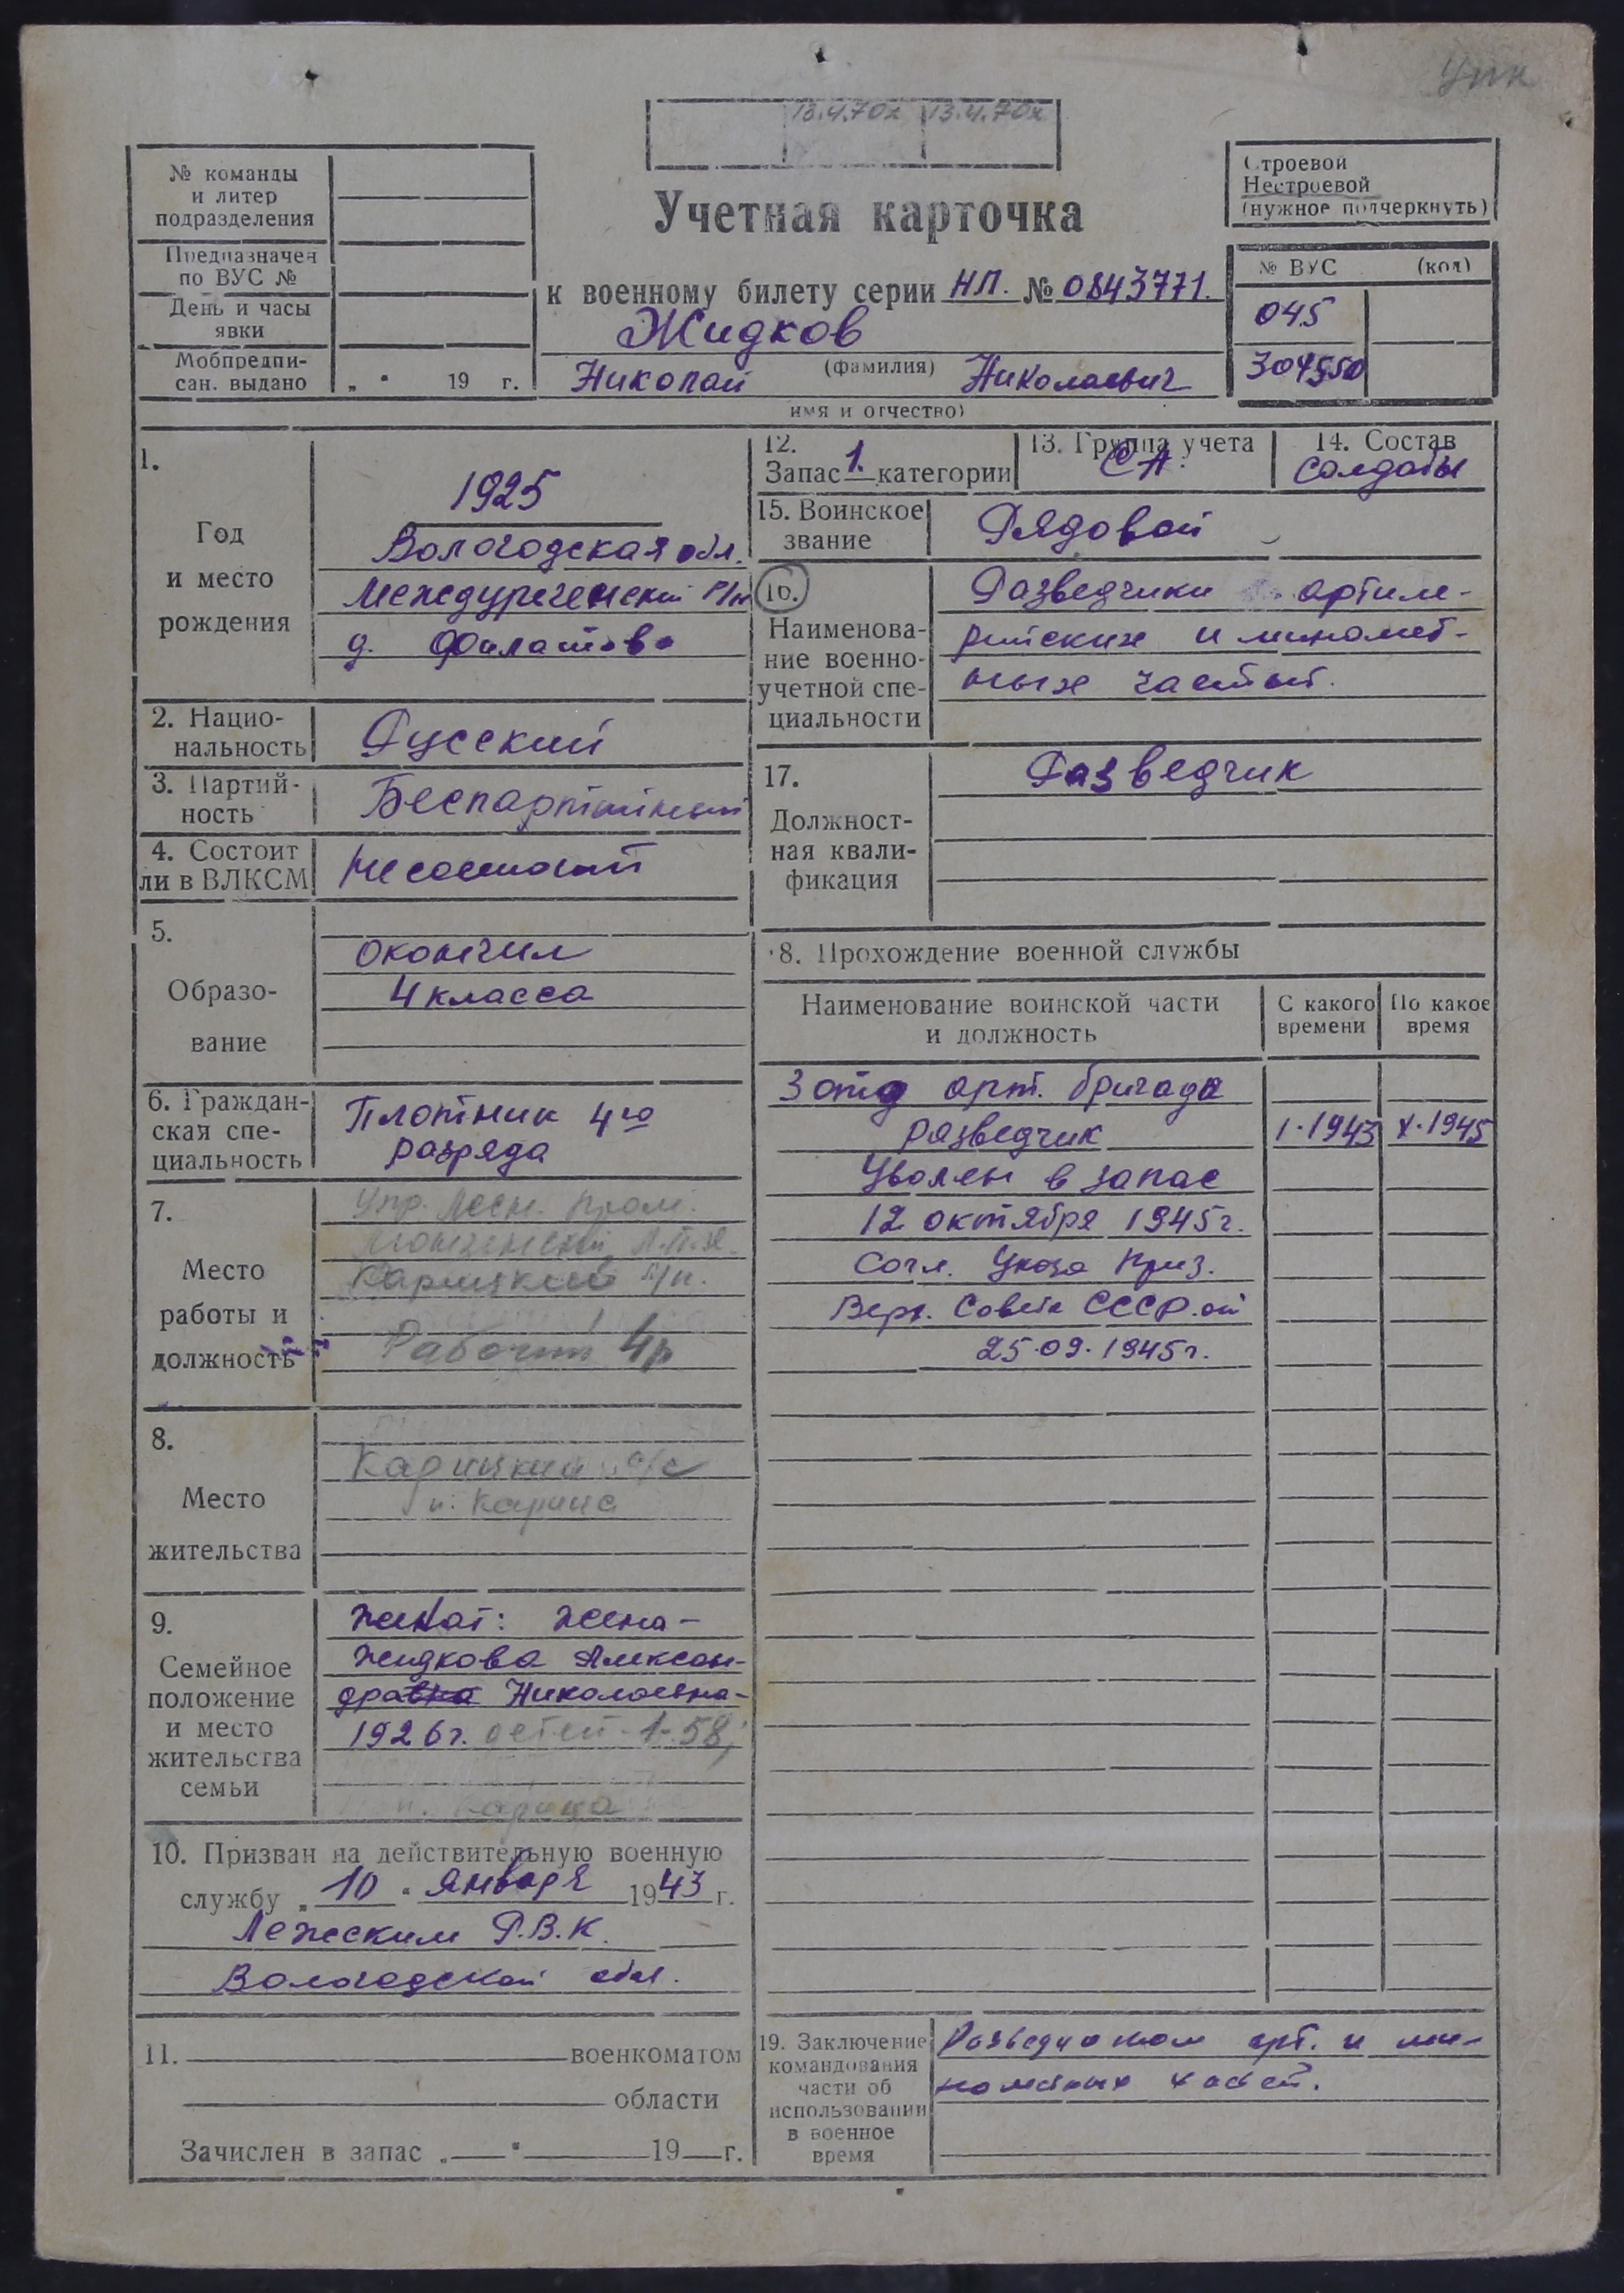 13.4.70г 13.4.70г
№ команды
и литер
подразделения
Предназначен
по ВУС №
День и часы
явки
Мобпредпи-
сан. выдано „ " 19 г.
Строевой
Нестроевой
(нужное подчеркнуть)
Учетная карточка
к военному билету серии НЛ. № 0843771.
Жидков
(фамилия)
Николай Николаевич
имя и отчество)
№ ВУС (код)
045
304550
1.
Год
и место
рождения
1925
Вологодская обл.
Междуреченский р/н
д. Филатово
2. Нацио-
нальность
Русский
3. Партий-
ность
Беспартийный
4. Состоит
ли в ВЛКСМ
Не состоит
5.
Образо-
вание
окончил
4 класса
6. Граждан-
ская спе-
циальность
Плотник 4го
разряда
7.
Место
работы и
должность
Упр. Лесн. пром.
Карицкий л/п.
Рабочий 4р
8.
Место
жительства
Карицкий с/с
п. Карица
9.
Семейное
положение
и место
жительства
семьи
Женат: жена-
Жидкова Алексан-
дравна Николаевна-
1926г. детей-1-58;
п. Карица
10. Призван на действительную военную
службу „10" января 1943 г.
Лежским Р.В.К.
Вологодской обл.
11. военкоматом
области
Зачислен в запас „ " 19 г.
12.
Запас 1. категории
13. Группа учета
СА.
14. Состав
Солдаты
15. Воинское
звание
Рядовой
16.
Наименова-
ние военно-
учетной спе-
циальности
Разведчики артиле-
рийских и миномет-
ных частей.
17.
Должност-
ная квали-
фикация
Разведчик
18. Прохождение военной службы
Наименование воинской части
и должность
С какого
времени
По какое
время
3 отд арт. бригада
разведчик I.1943 X.1945
Уволен в запас
12 октября 1945г.
Согл. Указа През.
Верх. Совета СССР от
25.09.1945г.
19. Заключение
командования
части об
использовании
в военное
время
Разведчиком арт. и ми-
нометных частей.